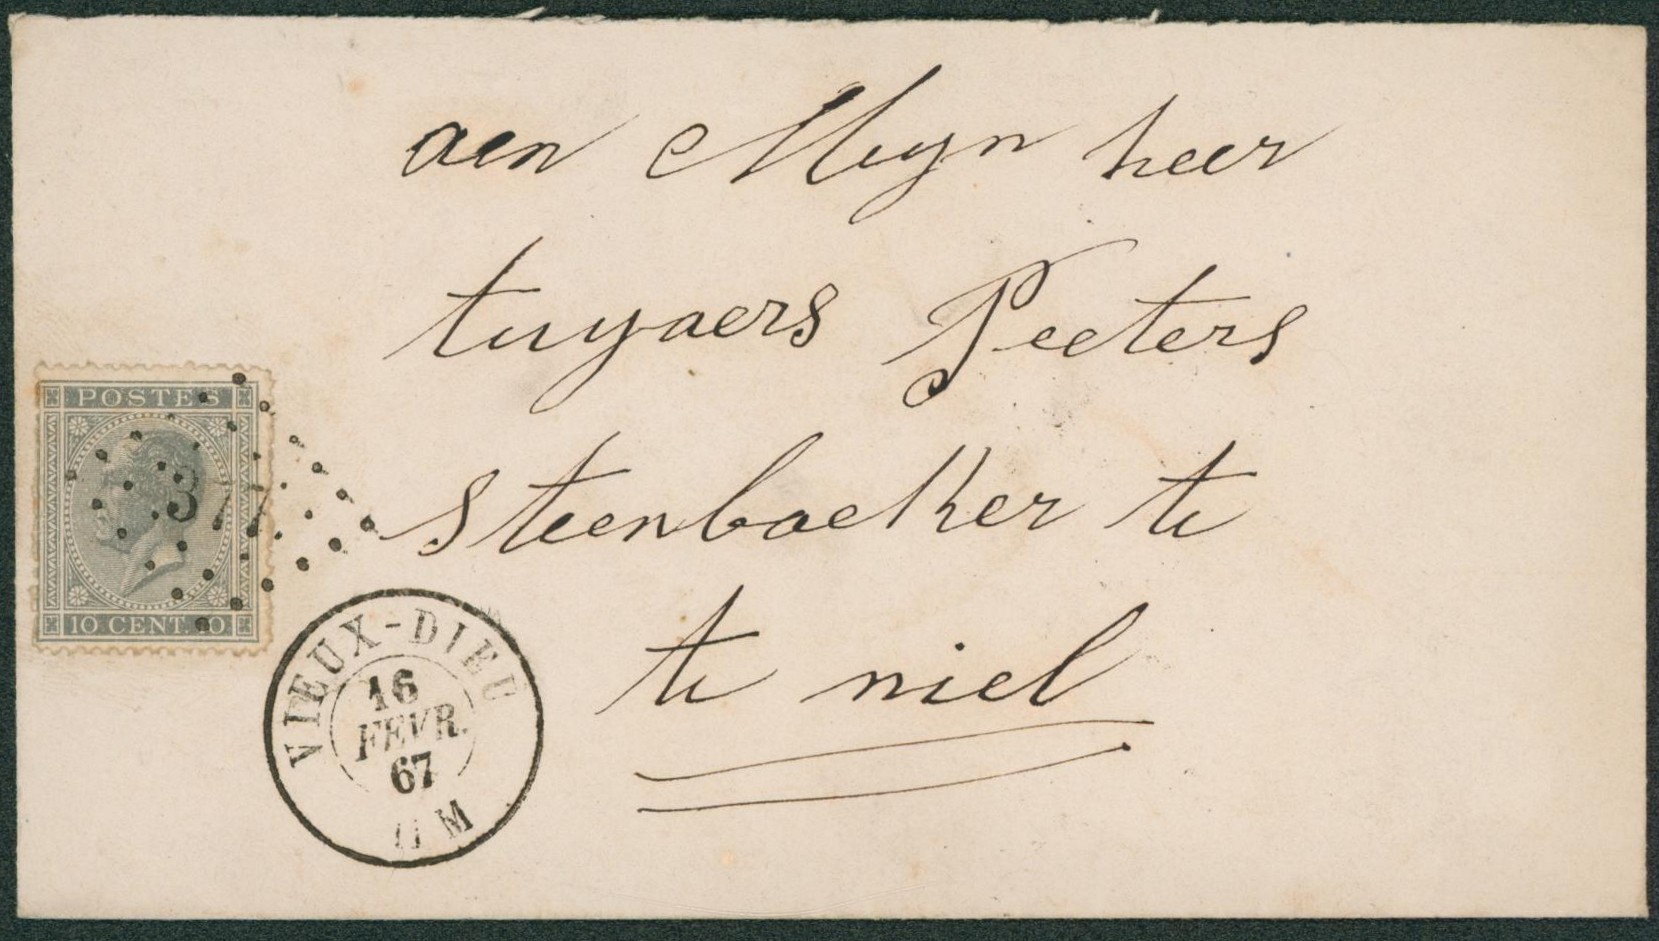 aen Meyn heer
tuyaers Peeters
steenbaekker te
te niel
POSTES
377
10 CENT. 10
VIEUX-DIEU
16
FEVR.
67
11 M